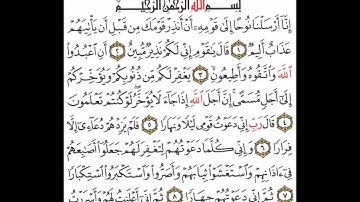 بِسْمِ اللَّهِ الرَّحْمَٰنِ الرَّحِيمِ
إِنَّا أَرْسَلْنَا نُوحًا إِلَىٰ قَوْمِهِ أَنْ أَنذِرْ قَوْمَكَ مِن قَبْلِ أَن يَأْتِيَهُمْ
عَذَابٌ أَلِيمٌ ١ قَالَ يَا قَوْمِ إِنِّي لَكُمْ نَذِيرٌ مُّبِينٌ ٢ أَنِ اعْبُدُوا
اللَّهَ وَاتَّقُوهُ وَأَطِيعُونِ ٣ يَغْفِرْ لَكُم مِّن ذُنُوبِكُمْ وَيُؤَخِّرْكُمْ
إِلَىٰ أَجَلٍ مُّسَمًّى إِنَّ أَجَلَ اللَّهِ إِذَا جَاءَ لَا يُؤَخَّرُ لَوْ كُنتُمْ تَعْلَمُونَ
٤ قَالَ رَبِّ إِنِّي دَعَوْتُ قَوْمِي لَيْلًا وَنَهَارًا ٥ فَلَمْ يَزِدْهُمْ دُعَائِي إِلَّا
فِرَارًا ٦ وَإِنِّي كُلَّمَا دَعَوْتُهُمْ لِتَغْفِرَ لَهُمْ جَعَلُوا أَصَابِعَهُمْ
فِي آذَانِهِمْ وَاسْتَغْشَوْا ثِيَابَهُمْ وَأَصَرُّوا وَاسْتَكْبَرُوا اسْتِكْبَارًا
٧ ثُمَّ إِنِّي دَعَوْتُهُمْ جِهَارًا ٨ ثُمَّ إِنِّي أَعْلَنتُ لَهُمْ وَأَسْرَرْتُ